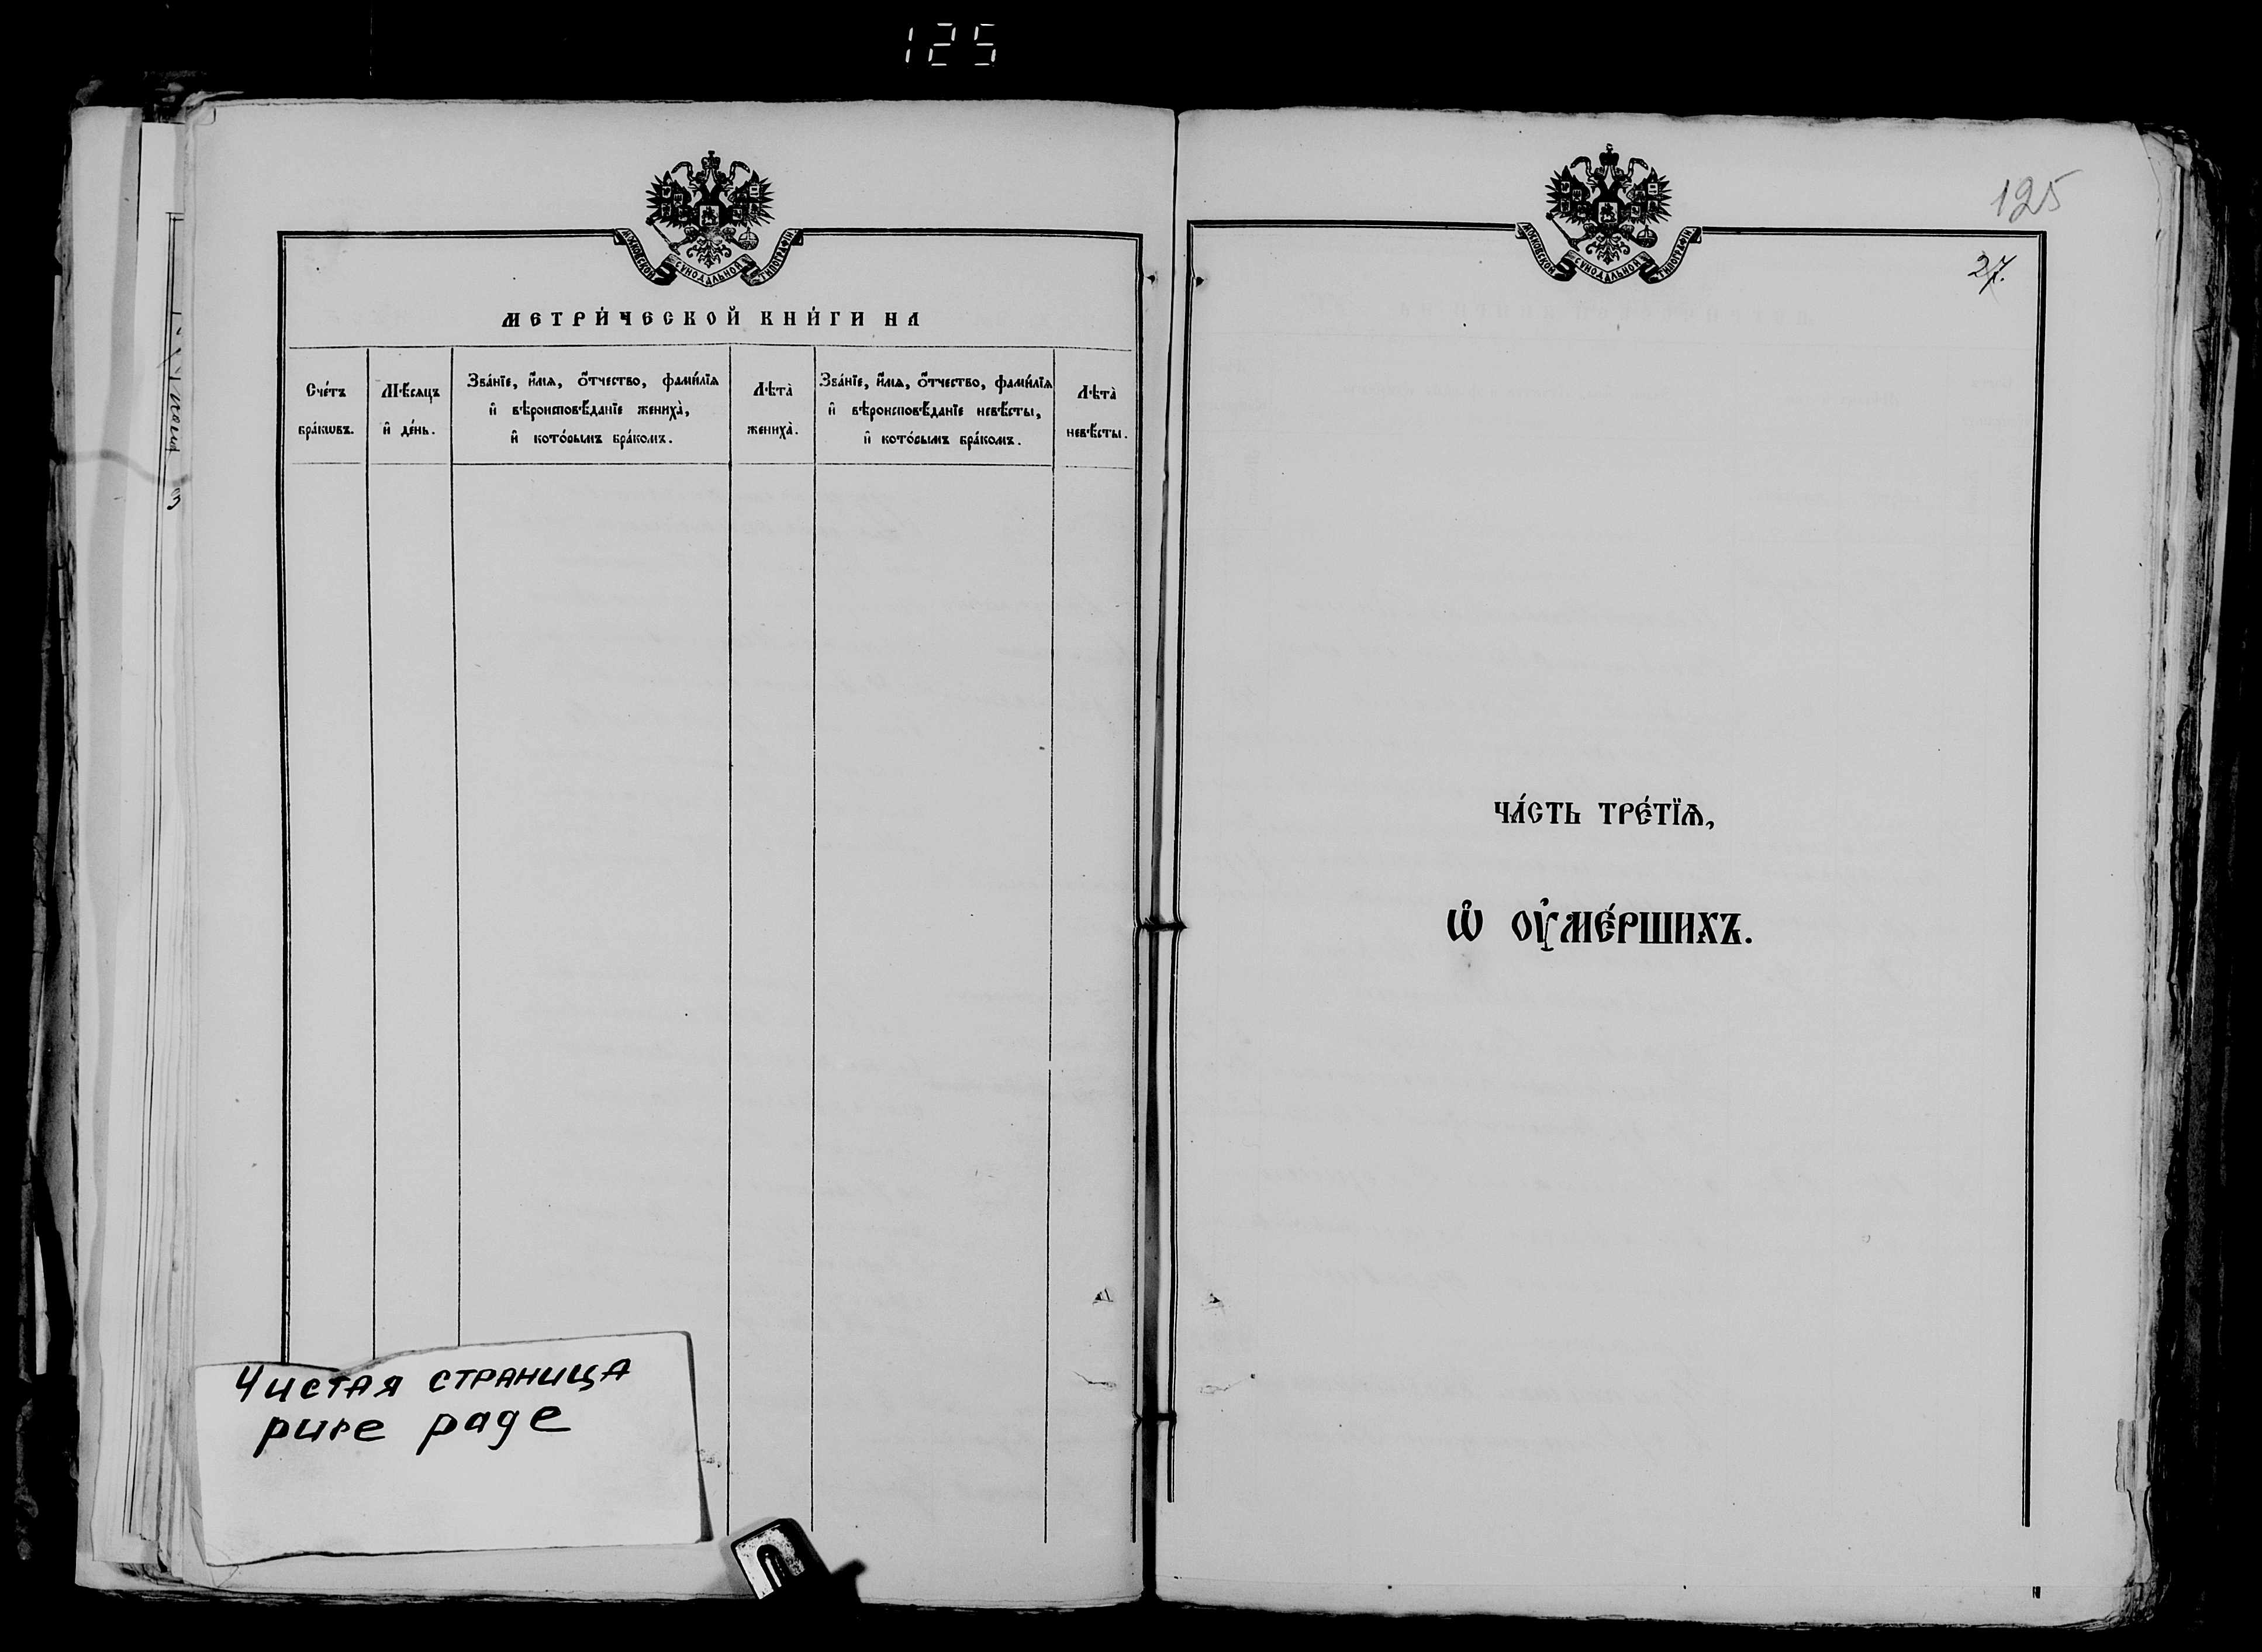 125
МОСКОВСКОЙ СѴНОДАЛЬНОЙ ТИПОГРАФІИ.
МЕТРИ́ЧЕСКОЙ КНИ́ГИ НА
Сче́тъ
бра́кѡвъ.
Мѣ́сяцъ
и҆ де́нь.
Зва́нїе, и҆́мѧ, ѻ҆́тчество, фами́лїѧ
и҆ вѣроисповѣ́данїе жениха̀,
и҆ кото́рымъ бра́комъ.
Лѣта̀
жениха̀.
Зва́нїе, и҆́мѧ, ѻ҆́тчество, фами́лїѧ
и҆ вѣроисповѣ́данїе невѣ́сты,
и҆ кото́рымъ бра́комъ.
Лѣта̀
невѣ́сты.
Чистая страница
pure page
МОСКОВСКОЙ СѴНОДАЛЬНОЙ ТИПОГРАФІИ.
125
27.
ЧА́СТЬ ТРЕ́ТЇѦ,
Ѡ҆ ОУ҆МЕ́РШИХЪ.